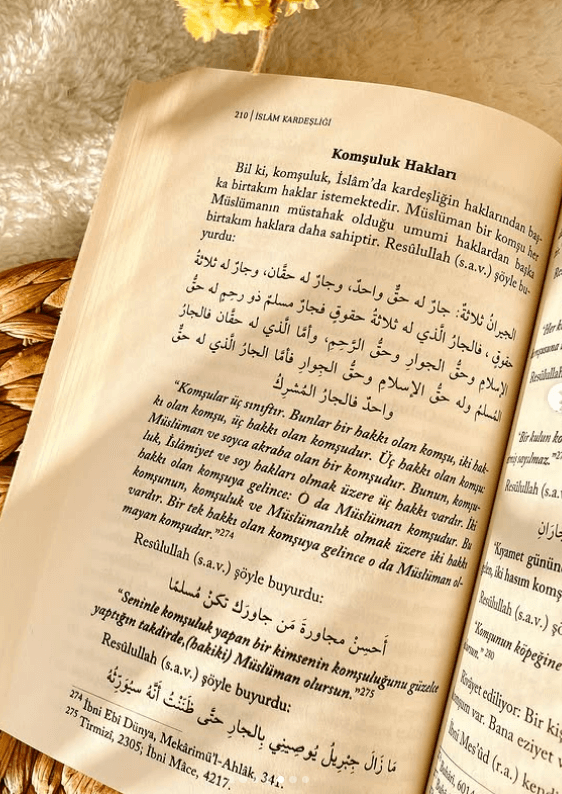 210 | İSLÂM KARDEŞLİĞİ
Komşuluk Hakları
Bil ki, komşuluk, İslâm'da kardeşliğin haklarından baş-
ka birtakım haklar istemektedir. Müslüman bir komşu her
Müslümanın müstahak olduğu umumi haklardan başka
birtakım haklara daha sahiptir. Resûlullah (s.a.v.) şöyle bu-
yurdu:
الجيرانُ ثلاثةٌ: جارٌ له حقٌّ واحدٌ، وجارٌ له حقَّان، وجارٌ له ثلاثةُ
حقوقٍ، فالجارُ الَّذي له ثلاثةُ حقوقٍ فجارٌ مسلمٌ ذو رحِمٍ له حقُّ
الإسلامِ وحقُّ الجوارِ وحقُّ الرَّحِمِ، وأمَّا الَّذي له حقَّان فالجارُ
المُسلمُ وله حقُّ الإسلامِ وحقُّ الجوارِ فأمَّا الجارُ الَّذي له حقٌّ
واحدٌ فالجارُ المُشرِكُ
“Komşular üç sınıftır. Bunlar bir hakkı olan komşu, iki hak-
kı olan komşu, üç hakkı olan komşudur. Üç hakkı olan komşu:
Müslüman ve soyca akraba olan bir komşudur. Bunun, komşu-
luk, İslâmiyet ve soy hakları olmak üzere üç hakkı vardır. İki
hakkı olan komşuya gelince: O da Müslüman komşudur. Bu
komşunun, komşuluk ve Müslümanlık olmak üzere iki hakkı
vardır. Bir tek hakkı olan komşuya gelince o da Müslüman ol-
mayan komşudur.”274
Resûlullah (s.a.v.) şöyle buyurdu:
أَحسِنْ مجاورةَ مَن جاورَك تكنْ مُسلمًا
“Seninle komşuluk yapan bir kimsenin komşuluğunu güzelce
yaptığın takdirde,(hakiki) Müslüman olursun.”275
Resûlullah (s.a.v.) şöyle buyurdu:
مَا زَالَ جِبْرِيلُ يُوصِينِي بِالْجَارِ حتَّى ظَنَنْتُ أنَّهُ سيُوَرِّثُهُ
274 İbni Ebi Dünya, Mekârimü'l-Ahlâk, 341.
275 Tirmizi, 2305; İbni Mâce, 4217.
“Her k
Resûlullah
“Bir kulun ko
miş sayılmaz.”
Resûlullah (s.a.
جارَانِ
“Kıyamet günün
len, iki hasım komş
Resûlullah (s.a.v.) şö
“Komşunun köpeğine
olursun.”280
Rivâyet ediliyor: Bir kiş
komşum var. Bana eziyet v
İbni Mes'ûd (r.a.) kend